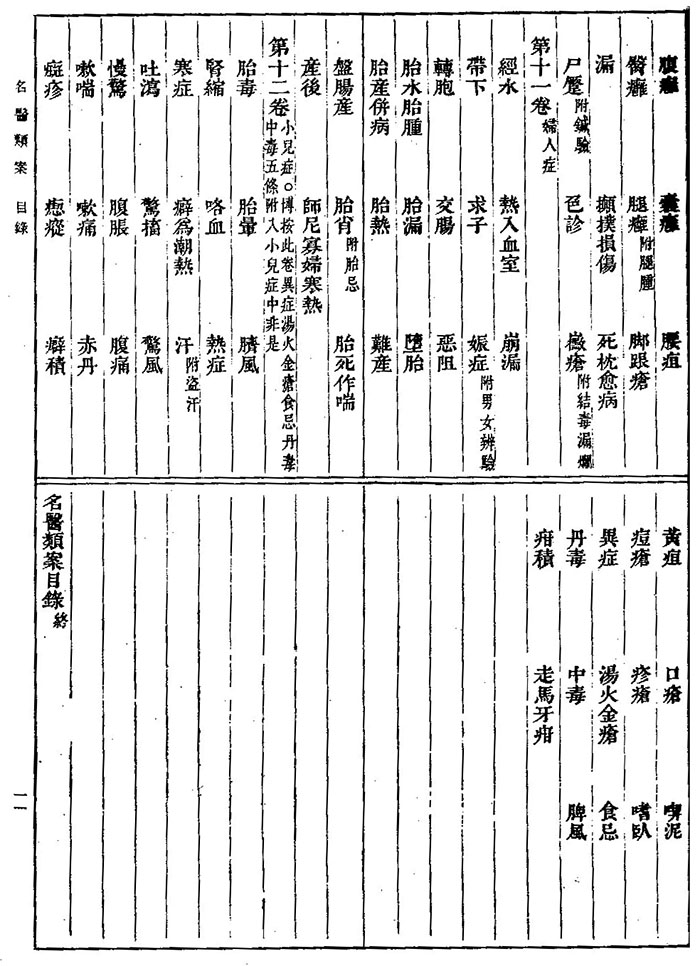 腹癰　囊癰　腰疽
臀癰　腿癰附腿腫　脚跟瘡
漏　攧撲損傷　死枕愈病
尸蹷附鍼驗　邑診　黴瘡附結毒漏爛
第十一卷婦人症
經水　熱入血室　崩漏
帶下　求子　娠症附男女辨驗
轉胞　交腸　惡阻
胎水胎腫　胎漏　墮胎
胎產併病　胎熱　難產
盤腸產　胎肖附胎忌　胎死作喘
產後　師尼寡婦寒熱
第十二卷小兒症○博按此卷異症湯火金瘡食忌丹毒中毒五條附入小兒症中非是
胎毒　胎暈　臍風
腎縮　咯血　熱症
寒症　癖爲潮熱　汗附盜汗
吐瀉　驚搐　驚風
慢驚　腹脹　腹痛
嗽喘　嗽痛　赤丹
癍疹　瘛瘲　癖積
黃疸　口瘡　喫泥
痘瘡　疹瘡　嗜臥
異症　湯火金瘡　食忌
丹毒　中毒　脾風
疳積　走馬牙疳
名醫類案目錄終
名醫類案　目錄
一一